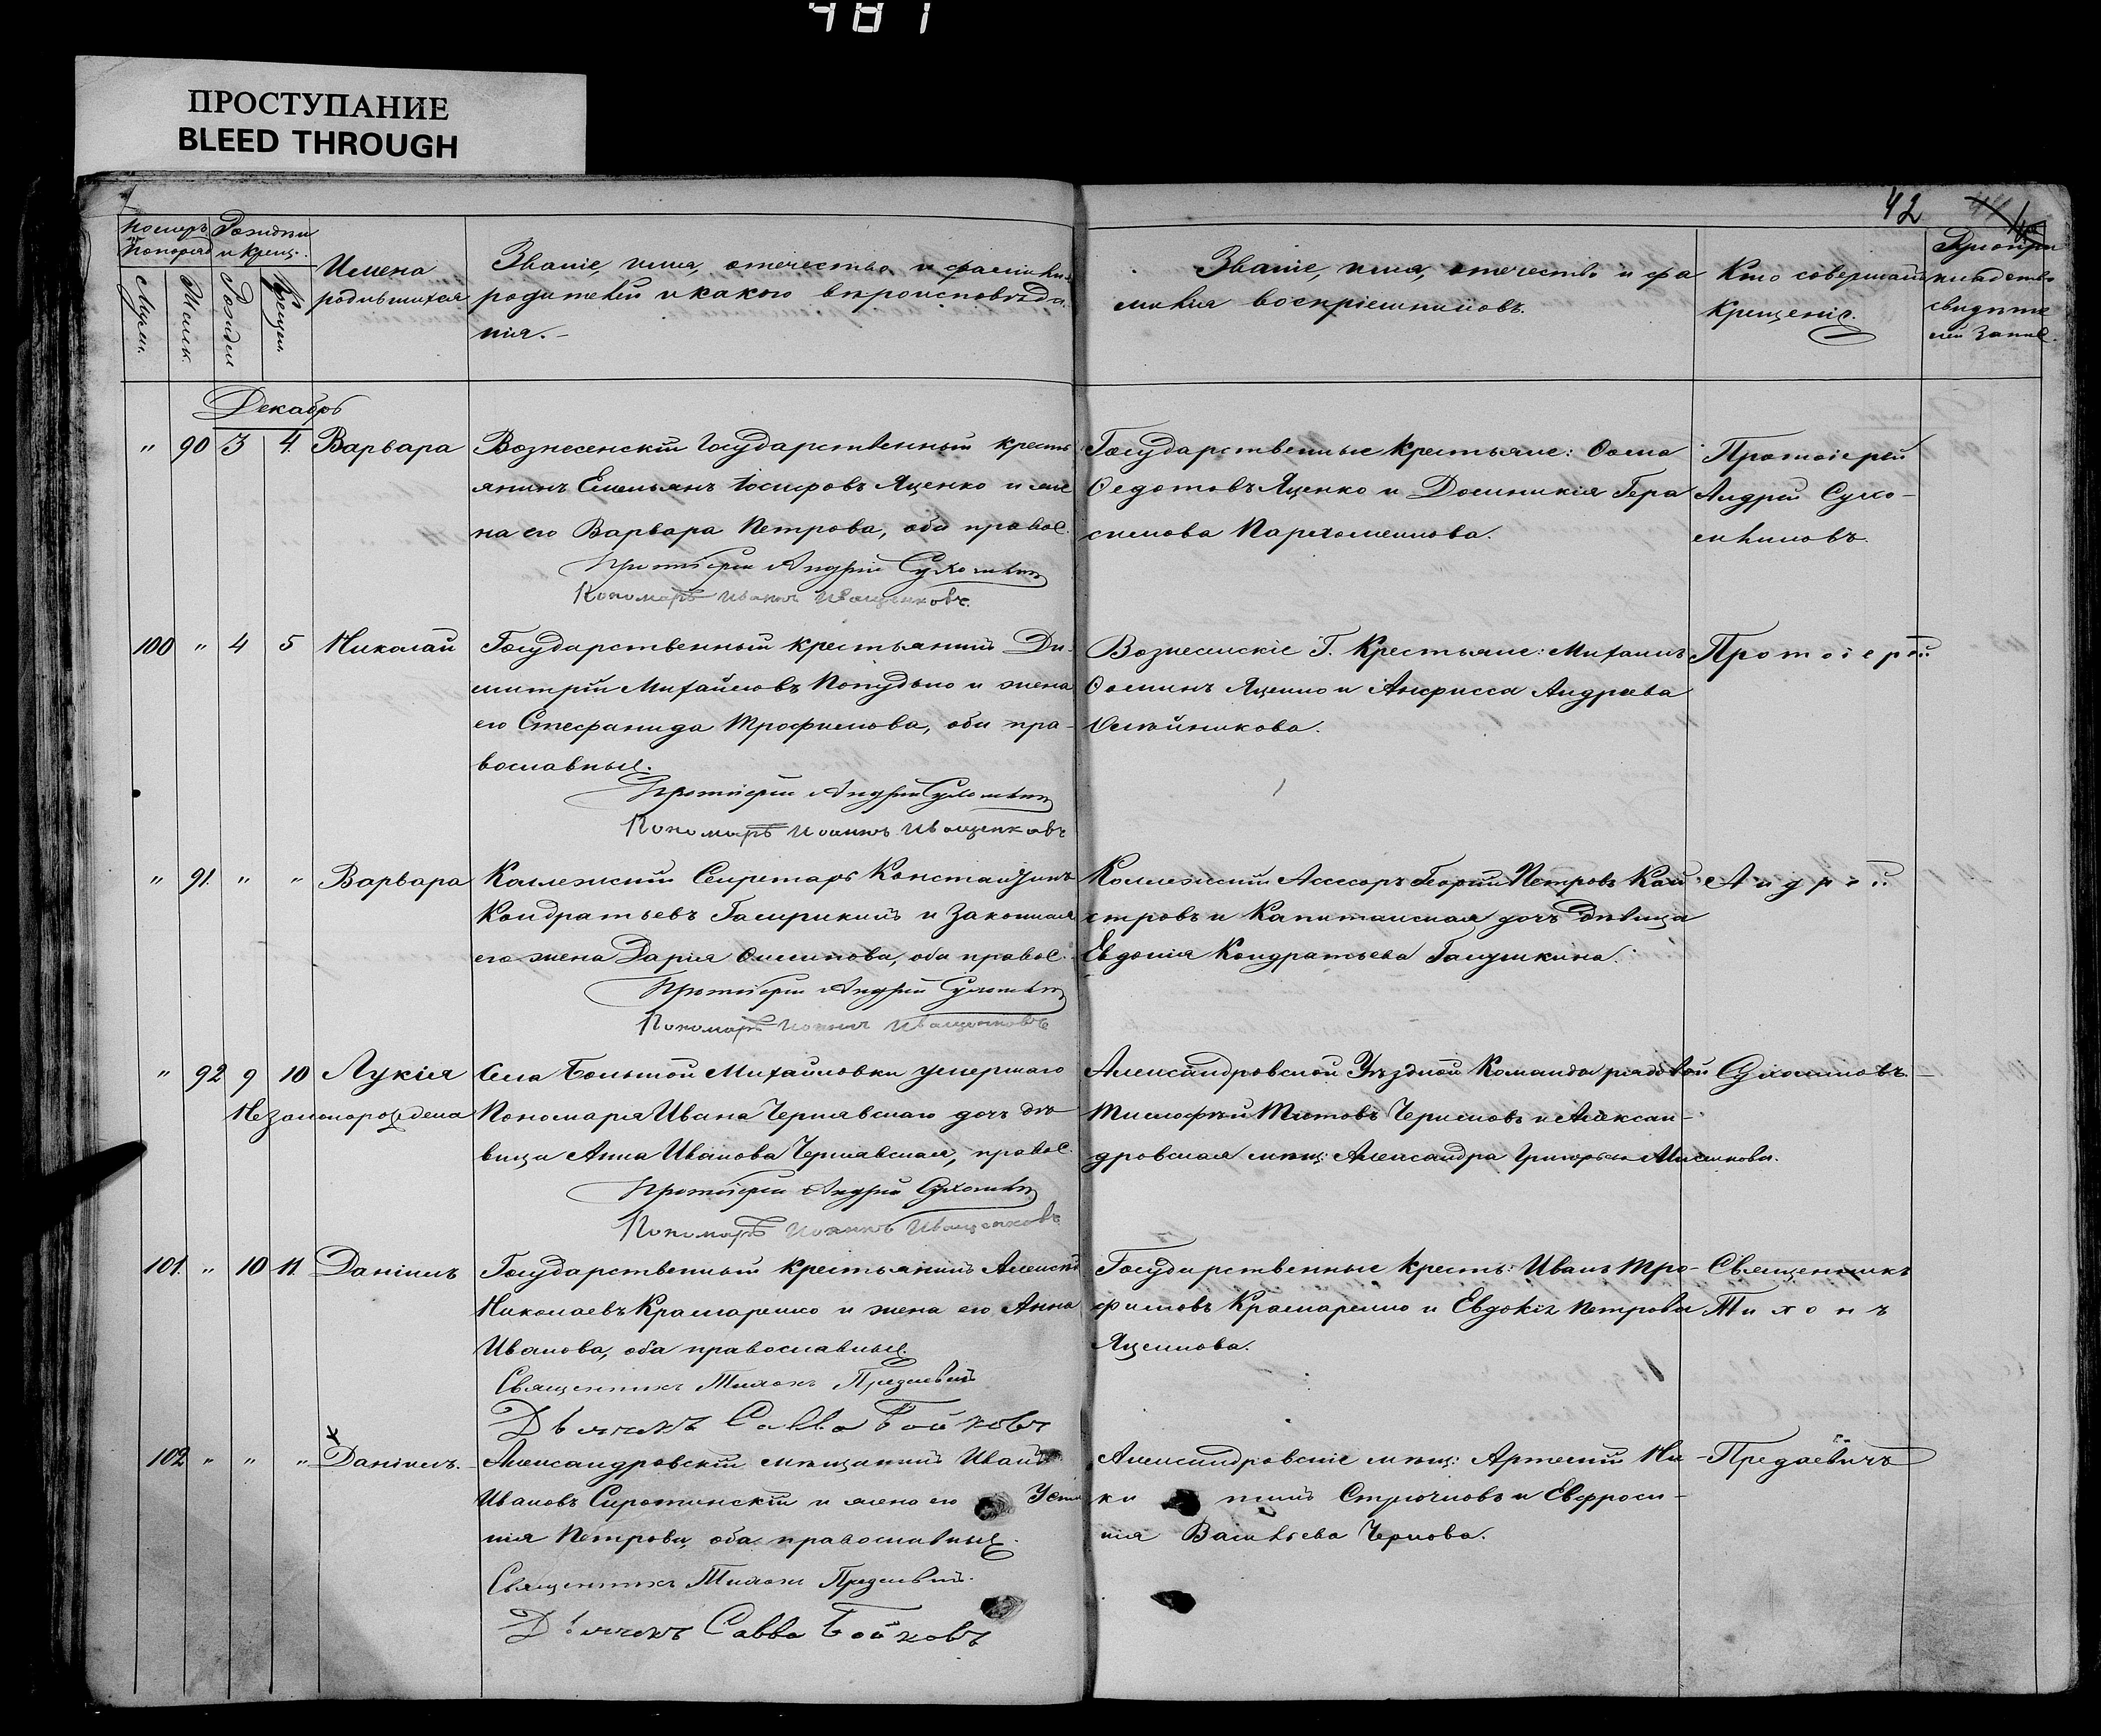 481
ПРОСТУПАНИЕ
BLEED THROUGH
42
Номеръ Рожден
по поряд и Крещ.
Муж. Женск. Рожден Крещен.
Имена
родившихся
Званіе, имя, отечество и фамилія
родителей и какого вѣроисповѣда
нія.
Званіе, имя, отечество и фа
милія воспріемниковъ.
Кто совершалъ
Крещеніе.
Рукопри
кладство
свидѣте
лей Запис.
Декабрь
" 90 3 4. Варвара
Вознесенскій Государственный кресть
янинъ Емельянъ Іосифовъ Яценко и же
на его Варвара Петрова, оба правос.
Протоіерей Андрей Сухомлинъ
Пономарь Иванъ Иващенковъ.
Государственные Крестьяне: Ѳома
Ѳедотовъ Яценко и Домникія Гера
симова Пархоменкова.
Протоіерей
Андрей Сухо-
млиновъ.
100 " 4 5 Николай
Государственный крестьянинъ Ди-
митрій Михайловъ Попудько и жена
его Стефанида Трофимова, оба пра-
вославные.
Протоіерей Андрей Сухомлинъ
Пономарь Иоаннъ Иващенковъ
Вознесенскіе Г. Крестьяне: Михаилъ
Ѳоминъ Яценко и Анфисса Андреева
Олейникова.
Протоіерей
" 91. " " Варвара
Коллежскій Секретарь Константинъ
Кондратьевъ и Законная
его жена Дарія, оба правос.
Протоіерей Андрей Сухомлинъ
Пономарь Иоаннъ Иващенковъ
Коллежскій Ассесоръ Георгій Петровъ Кай
стровъ и Капитанская дочь Дѣвица
Евдокія Кондратьева Галушкина.
Андрей
" 92 9 10 Лукія
Незаконорождена
Села Большой Михайловки умершаго
Пономаря Ивана Чернявскаго дочь дѣ
вица Анна Иванова Чернявская, правос.
Протоіерей Андрей Сухомлинъ
Пономарь Иоаннъ Иващенковъ
Александровской Уѣздной Команды рядовой
Тимофей Титовъ Черновъ и Алексан-
дровская мѣщ: Александра Григорьева
Сухомлиновъ.
101. " 10 11. Даніилъ
Государственный Крестьянинъ Алексѣй
Николаевъ Крамаренко и жена его Анна
Иванова, оба православные.
Священникъ Тихонъ Предаевичъ
Дьячекъ Савва Бойковъ
Государственные Кресть: Иванъ Тро-
фимовъ Крамаренко и Евдокія Петрова
Яценкова.
Священникъ
Тихонъ
102 " " " Даніилъ.
Александровскій мѣщанинъ Иванъ
Ивановъ Сиротинскій и жена его Усти
нія Петрова, оба православные.
Священникъ Тихонъ Предаевичъ.
Дьячекъ Савва Бойковъ
Александровскіе мѣщ: Артемій Ни-
ки тинъ Стрючковъ и Евфроси-
нія Васильева Чернова.
Предаевичъ